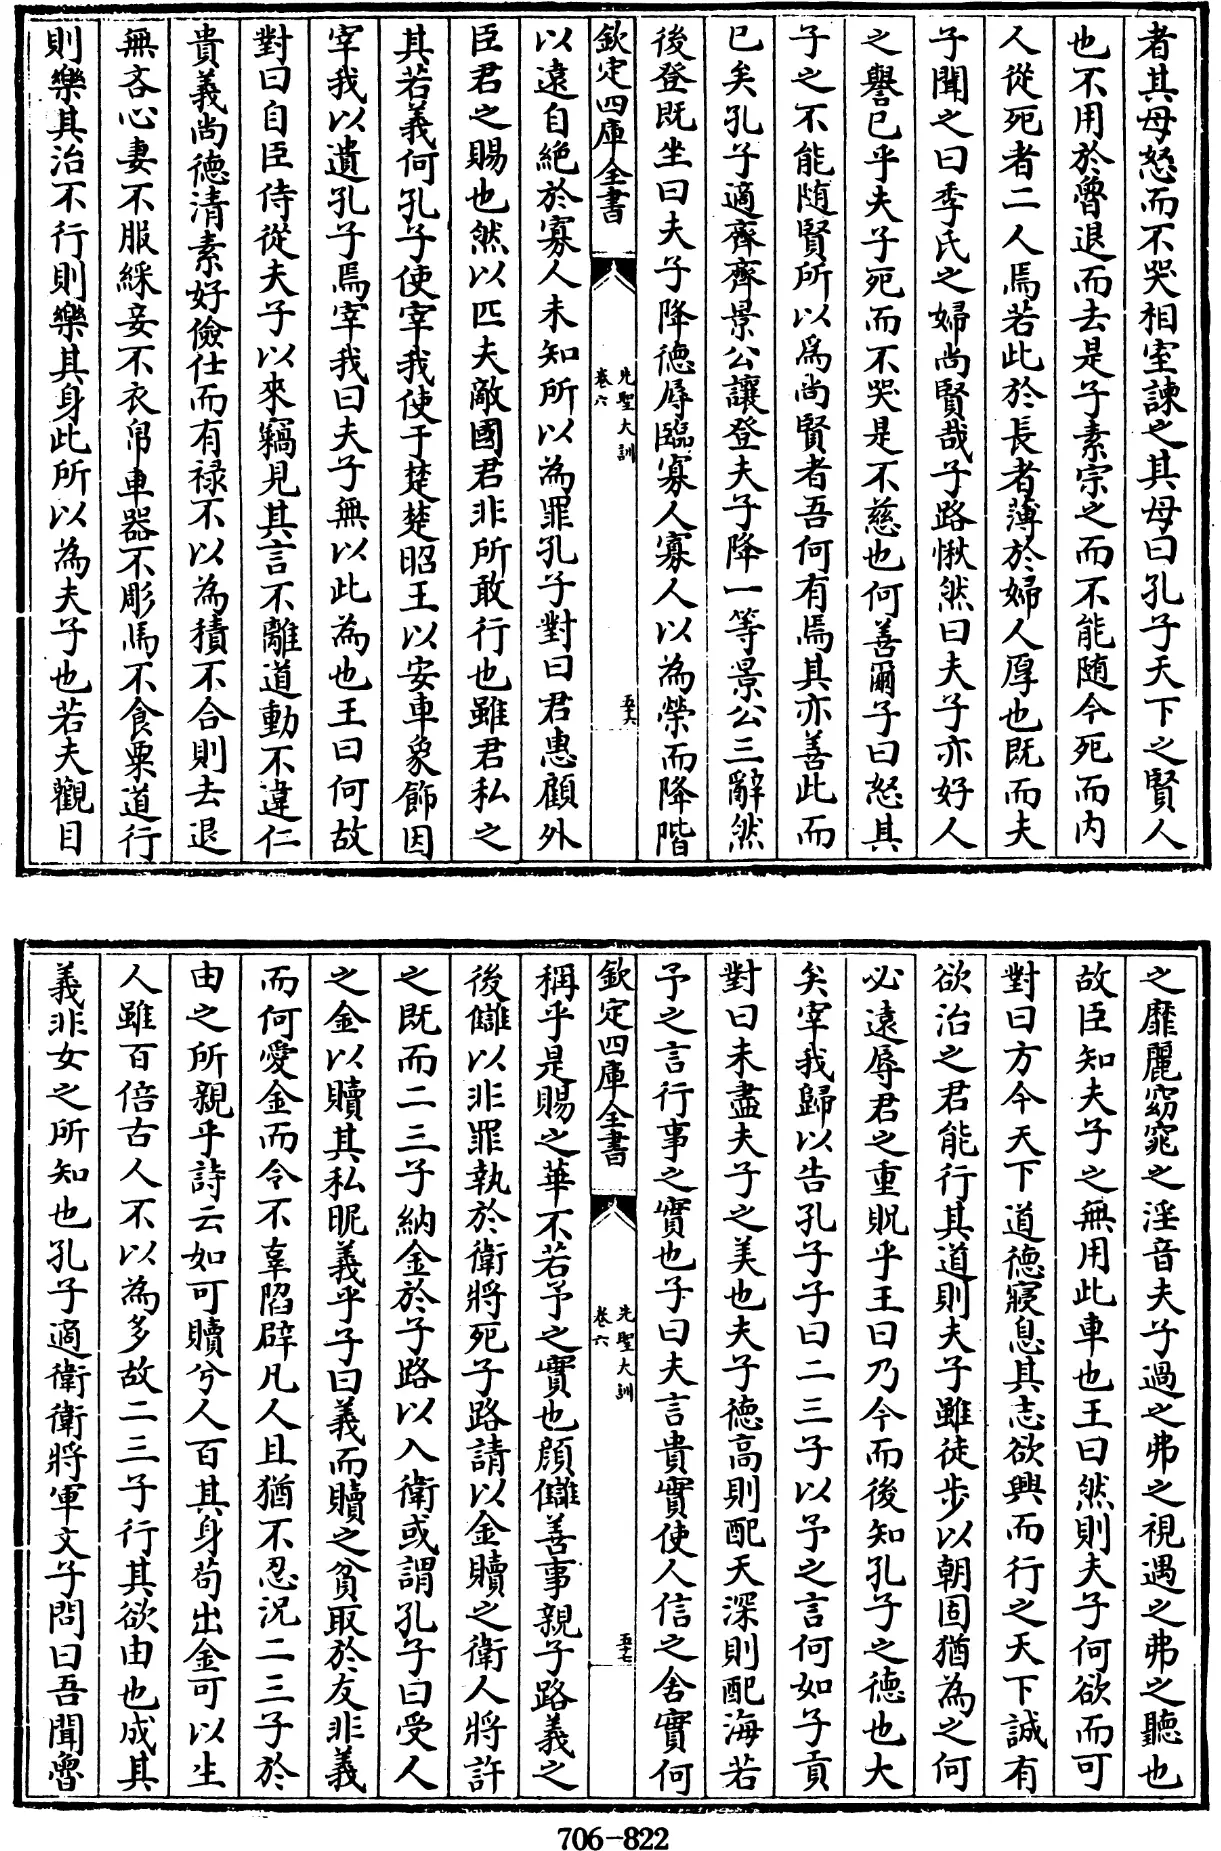 者其母怒而不哭相室諫之其母曰孔子天下之賢人
也不用於魯退而去是子素宗之而不能随今死而内
人從死者二人焉若此於長者薄於婦人厚也既而夫
子聞之曰季氏之婦尚賢哉子路愀然曰夫子亦好人
之譽已乎夫子死而不哭是不慈也何善爾子曰怒其
子之不能随賢所以爲尚賢者吾何有焉其亦善此而
已矣孔子適齊齊景公讓登夫子降一等景公三辭然
後登既坐曰夫子降德辱臨寡人寡人以為榮而降階
欽定四庫全書
先聖大訓
卷六
五十六
以遠自絶於寡人未知所以為罪孔子對曰君惠顧外
臣君之賜也然以匹夫敵國君非所敢行也雖君私之
其若義何孔子使宰我使于楚楚昭王以安車象飾因
宰我以遺孔子焉宰我曰夫子無以此為也王曰何故
對曰自臣侍從夫子以來竊見其言不離道動不違仁
貴義尚德清素好儉仕而有禄不以為積不合則去退
無吝心妻不服綵妾不衣帛車器不彫馬不食粟道行
則樂其治不行則樂其身此所以為夫子也若夫觀目
之靡麗窈窕之淫音夫子過之弗之視遇之弗之聽也
故臣知夫子之無用此車也王曰然則夫子何欲而可
對曰方今天下道德寢息其志欲興而行之天下誠有
欲治之君能行其道則夫子雖徒步以朝固猶為之何
必遠辱君之重貺乎王曰乃今而後知孔子之德也大
矣宰我歸以告孔子子曰二三子以予之言何如子貢
對曰未盡夫子之美也夫子德高則配天深則配海若
予之言行事之實也子曰夫言貴實使人信之舍實何
欽定四庫全書
先聖大訓
卷六
五十七
稱乎是賜之華不若予之實也顔讎善事親子路義之
後讎以非罪執於衛將死子路請以金贖之衛人將許
之既而二三子納金於子路以入衛或謂孔子曰受人
之金以贖其私昵義乎子曰義而贖之貧取於友非義
而何愛金而令不辜陷辟凡人且猶不忍況二三子於
由之所親乎詩云如可贖兮人百其身苟出金可以生
人雖百倍古人不以為多故二三子行其欲由也成其
義非女之所知也孔子適衛衛將軍文子問曰吾聞魯
706-822